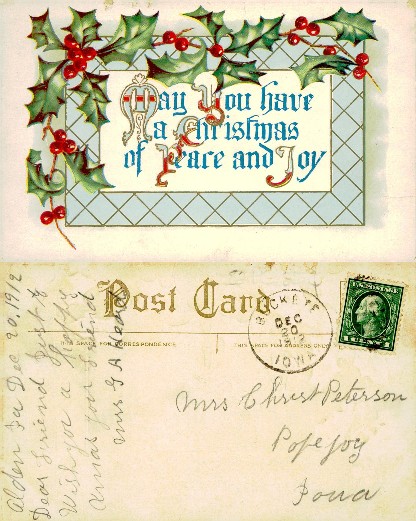 May You have
a Christmas
of Peace and Joy
Post Card
THIS SPACE FOR WRITING
THIS SPACE FOR ADDRESS ONLY
DEC
20
IOWA
Alden Ia Dec 20, 1912
Dear Friend Just to
Wish you a Happy
Xmas your Friend
Mrs G A
Mrs Christ Peterson
Popejoy
Iowa